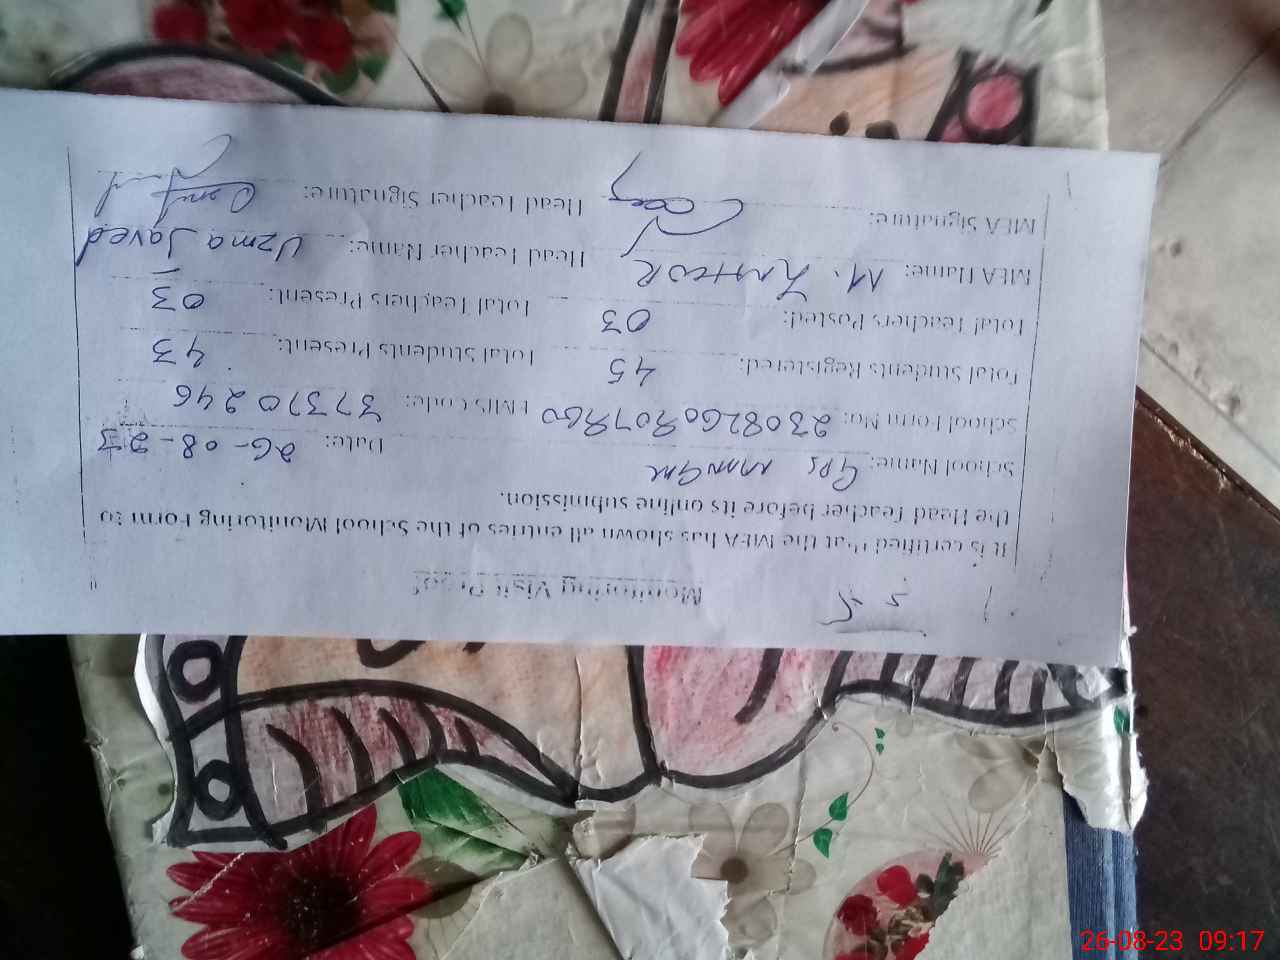 Monitoring Visit Proof
It is certified that the MEA has shown all entries of the School Monitoring Form to
the Head Teacher before its online submission.
School Name: GPS Date: 26-08-23
School Form No: EMIS Code: 37370246
Total Students Registered: 45 Total Students Present: 43
Total Teachers Posted: 03 Total Teachers Present: 03
MEA Name: M. Head Teacher Name: Uzma Javed
MEA Signature: Head Teacher Signature:
26-08-23 09:17